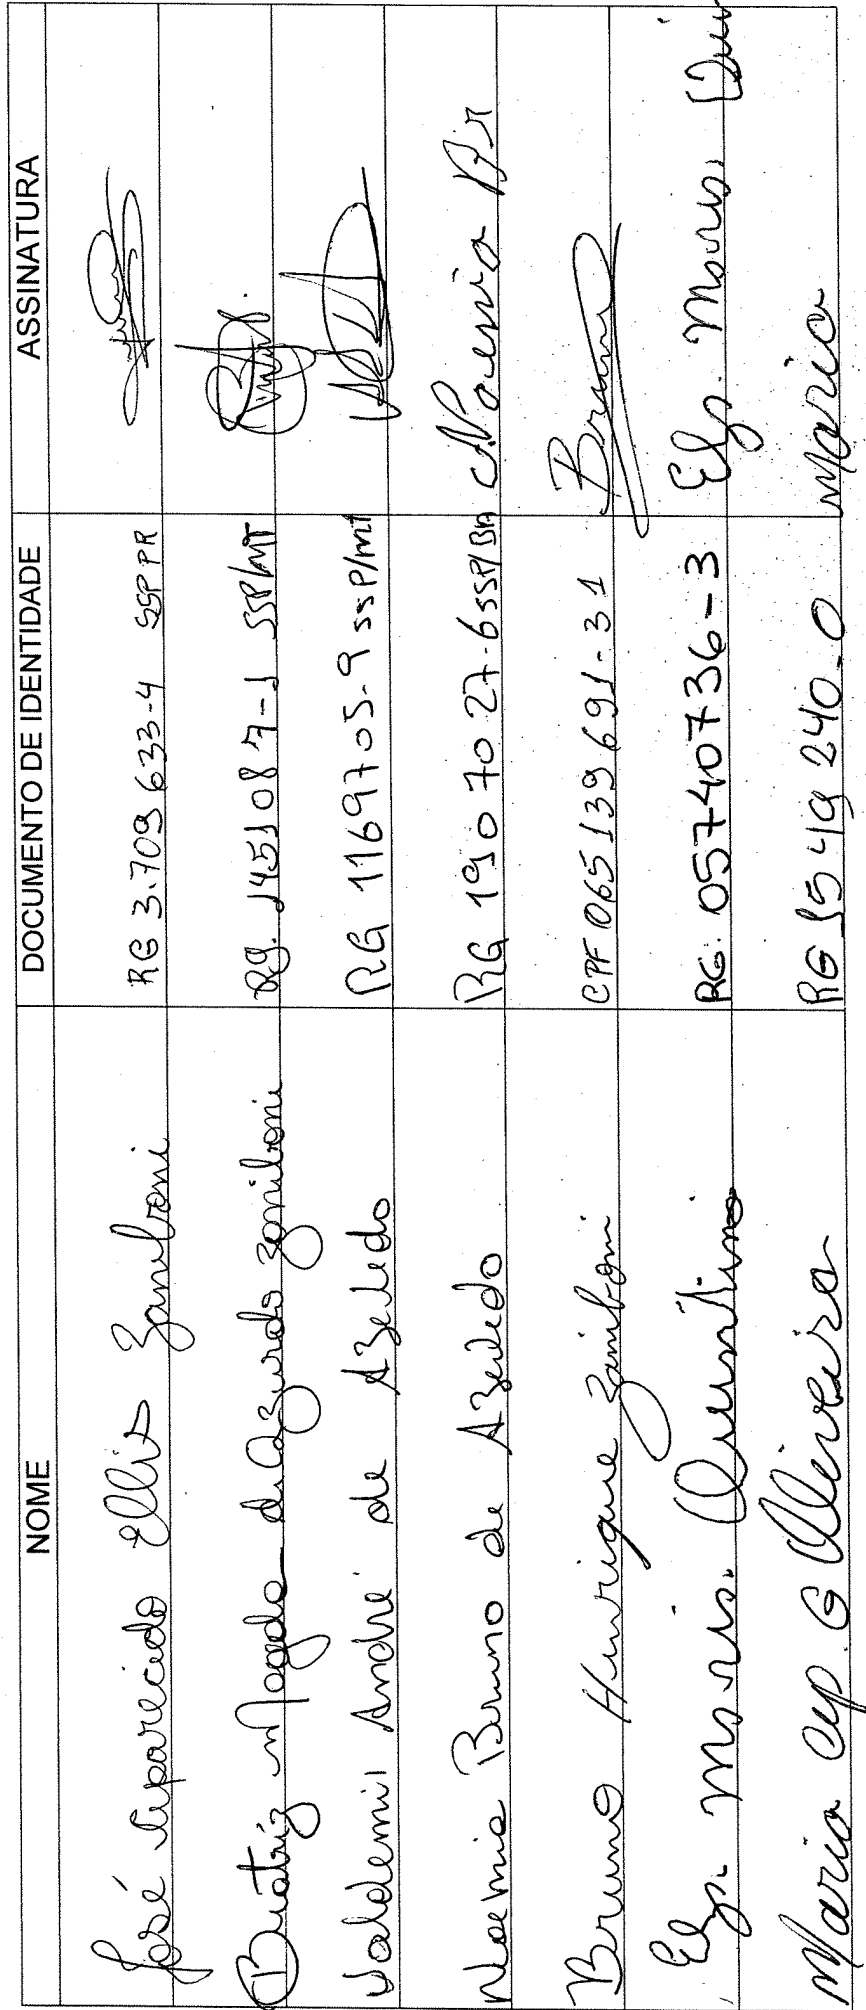 NOME DOCUMENTO DE IDENTIDADE ASSINATURA
José Aparecido Ellis Zamboni RG 3.709 633-4 SSP PR
Beatriz Magda de Azevedo Zamboni Rg. 1451087-1 SSP/MT
Valdemir André de Azevedo RG 1169705-9 SSP/MT
Noemia Bruno de Azevedo RG 190 70 27-6 SSP/BA Noemia Br
Bruno Henrique Zamboni CPF 065 139 691-31 Bruno
Elza Maria Quintino RG: 05740736-3 Elza Maria Qui
Maria Ap. G Oliveira RG 1549 240-0 Maria